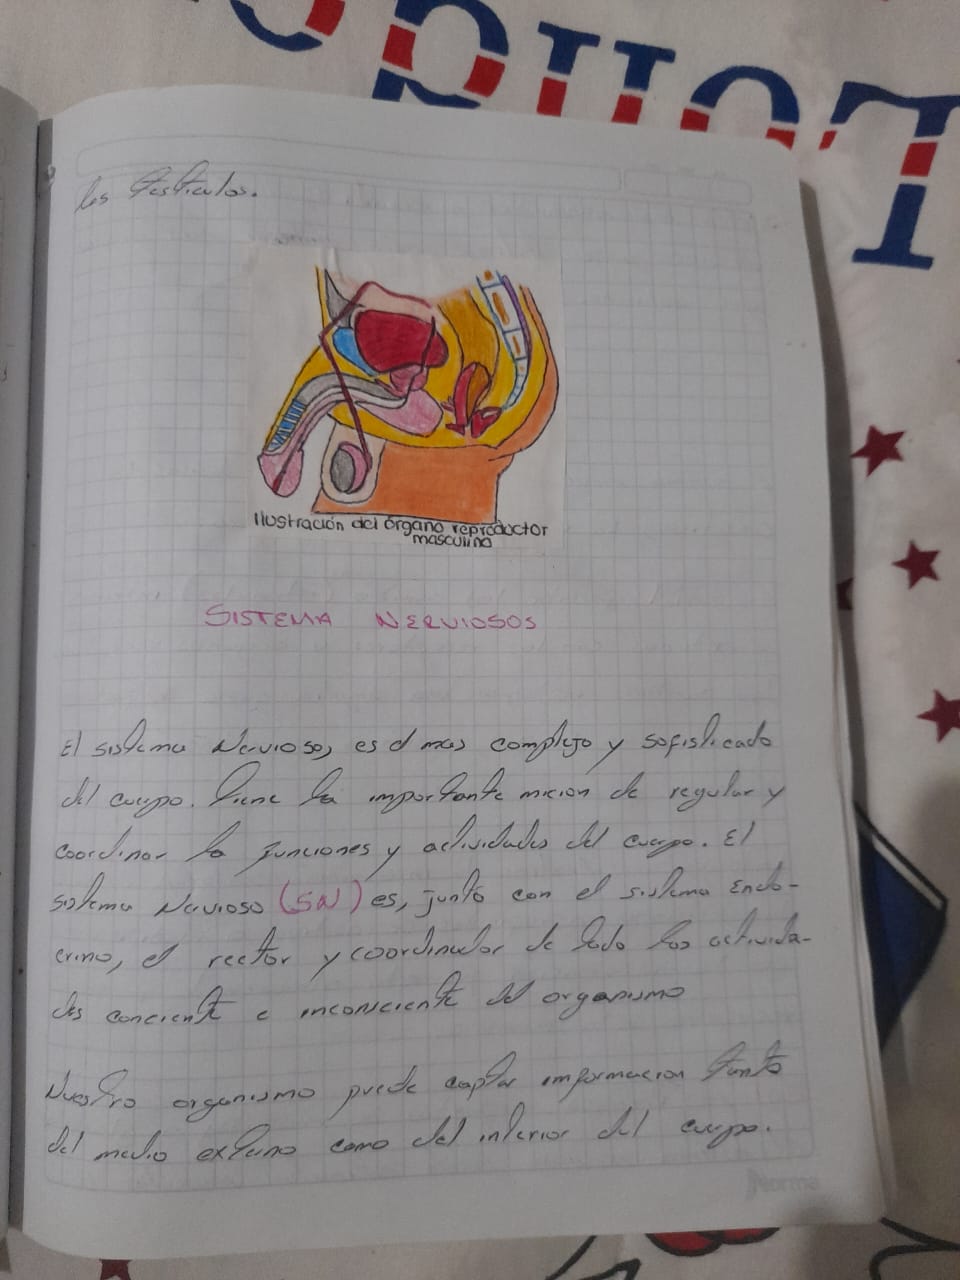 Lond
T
los testiculos.
Ilustración del órgano reproductor
masculino
SISTEMA NERVIOSOS
El sistema Nervioso, es el mas complejo y sofisticado
del cuerpo. tiene la importante micion de regular y
coordinar la funciones y actividades del cuerpo. El
sistema Nervioso (SN) es, junto con el sistema Endo-
crino, el rector y coordinador de todo las activida-
des conciente e inconsciente del organismo
Nuestro organismo puede captar informacion tanto
del medio externo como del interior del cuerpo.
Norma